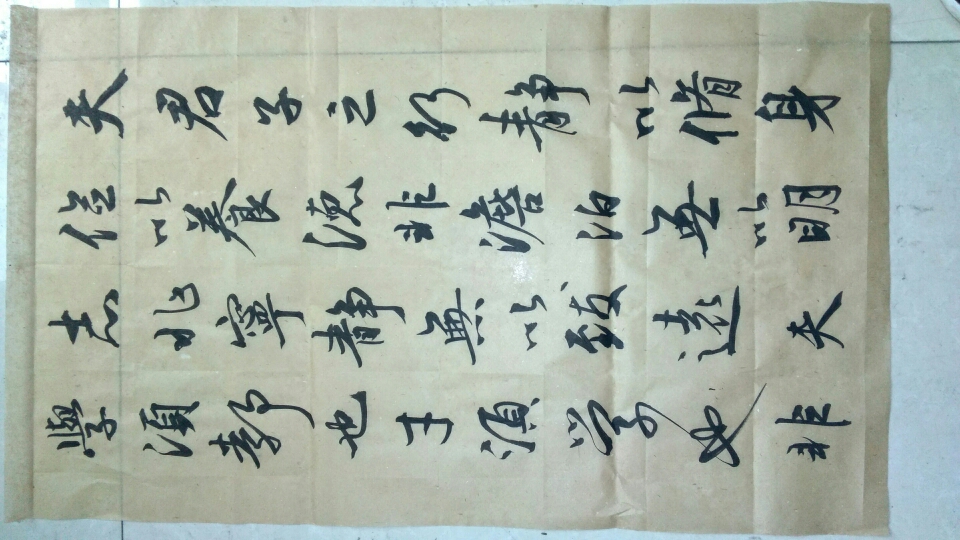 夫君子之行靜以脩身
儉以養德非澹泊無以明
志非寧靜無以致遠夫
學須靜也才須學也非